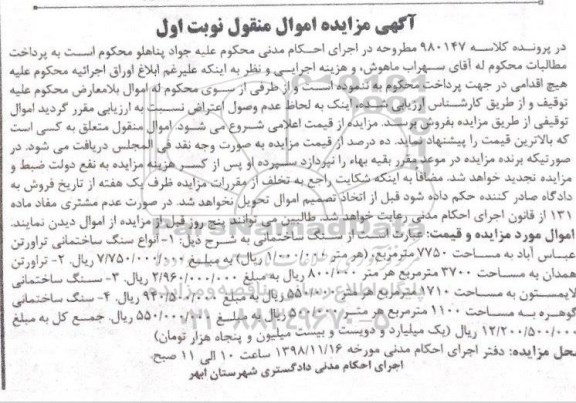 آگهی مزایده اموال منقول نوبت اول
در پرونده کلاسه ۹۸۰۱۴۷ مطروحه در اجرای احکام مدنی محکوم علیه جواد پناهلو محکوم است به پرداخت
مطالبات محکوم له آقای سهراب ماهوش، و هزینه اجرایی و نظر به اینکه علیرغم ابلاغ اوراق اجرائیه محکوم علیه
هیچ اقدامی در جهت پرداخت محکوم به ننموده است و از طرفی از سوی محکوم له اموال بلامعارض محکوم علیه
توقیف و از طریق کارشناس ارزیابی شده، اینک به لحاظ عدم وصول اعتراض نسبت به ارزیابی مقرر گردید اموال
توقیفی از طریق مزایده بفروش برسد. مزایده از قیمت اعلامی شروع می شود. اموال منقول متعلق به کسی است
که بالاترین قیمت را پیشنهاد نماید. ده درصد از قیمت مزایده به صورت وجه نقد فی المجلس دریافت می شود. در
صورتیکه برنده مزایده در موعد مقرر بقیه بهاء را نپردازد سپرده او پس از کسر هزینه مزایده به نفع دولت ضبط و
مزایده تجدید خواهد شد. مضافاً به اینکه شکایت راجع به تخلف از مقررات مزایده ظرف یک هفته از تاریخ فروش به
دادگاه صادر کننده حکم داده شود قبل از اتخاذ تصمیم اموال تحویل نخواهد شد. در صورت عدم مشتری مفاد ماده
۱۳۱ از قانون اجرای احکام مدنی رعایت خواهد شد. طالبین می توانند پنج روز قبل از مزایده از اموال دیدن نمایند.
اموال مورد مزایده و قیمت: سنگ ساختمانی به شرح ذیل: ۱- انواع سنگ ساختمانی تراورتن
عباس آباد به مساحت ۷۷۵۰ مترمربع، (هر متر ۱/۰۰۰/۰۰۰ ریال) به مبلغ ۷/۷۵۰/۰۰۰/۰۰۰ ریال ۲- تراورتن
همدان به مساحت ۳۷۰۰ مترمربع هر متر ۸۰۰/۰۰۰ ریال به مبلغ ۲/۹۶۰/۰۰۰/۰۰۰ ریال. ۳- سنگ ساختمانی
لایمستون به مساحت ۱۷۱۰ مترمربع هر متر ۵۵۰/۰۰۰ ریال به مبلغ ۹۴۰/۵۰۰/۰۰۰ ریال. ۴- سنگ ساختمانی
گوهره به مساحت ۱۱۰۰ مترمربع هر متر ۵۰۰/۰۰۰ ریال به مبلغ ۵۵۰/۰۰۰/۰۰۰ ریال. جمع کل به مبلغ
۱۲/۲۰۰/۵۰۰/۰۰۰ ریال (یک میلیارد و دویست و بیست میلیون و پنجاه هزار تومان)
محل مزایده: دفتر اجرای احکام مدنی مورخه ۱۳۹۸/۱۱/۱۶ ساعت ۱۰ الی ۱۱ صبح.
اجرای احکام مدنی دادگستری شهرستان ابهر